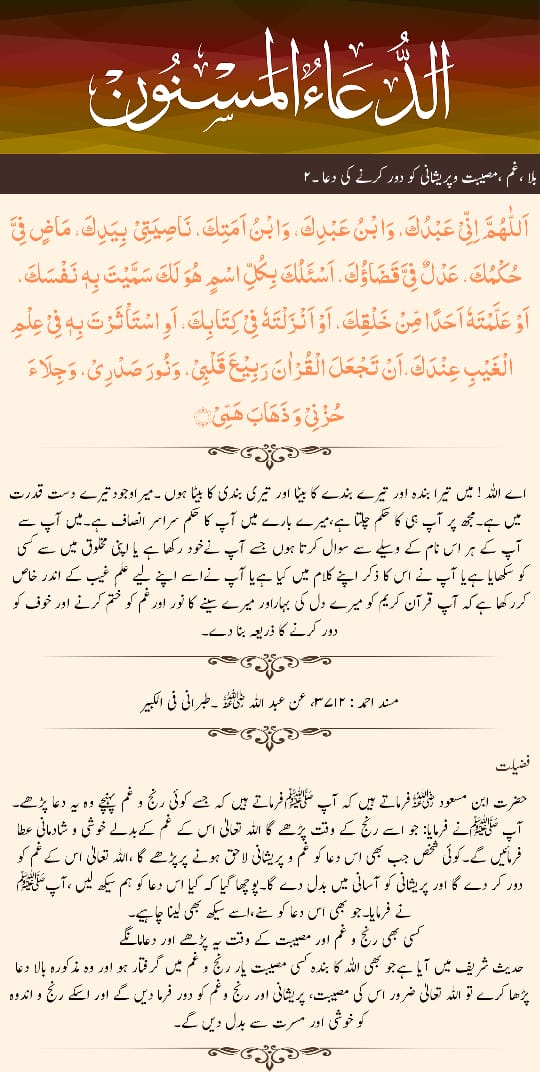 الدُّعَاءُ الْمَسْنُون
بلا ،غم ،مصیبت وپریشانی کو دور کرنے کی دعا ۔۲
اَللّٰهُمَّ اِنِّىْ عَبْدُكَ، وَابْنُ عَبْدِكَ، وَابْنُ اَمَتِكَ، نَاصِيَتِىْ بِيَدِكَ، مَاضٍ فِىَّ
حُكْمُكَ، عَدْلٌ فِىَّ قَضَاؤُكَ، اَسْئَلُكَ بِكُلِّ اسْمٍ هُوَ لَكَ سَمَّيْتَ بِهٖ نَفْسَكَ،
اَوْ عَلَّمْتَهٗ اَحَدًا مِّنْ خَلْقِكَ، اَوْ اَنْزَلْتَهٗ فِىْ كِتَابِكَ، اَوِ اسْتَأْثَرْتَ بِهٖ فِىْ عِلْمِ
الْغَيْبِ عِنْدَكَ، اَنْ تَجْعَلَ الْقُرْاٰنَ رَبِيْعَ قَلْبِىْ، وَنُوْرَ صَدْرِىْ، وَجِلَاءَ
حُزْنِىْ وَ ذَهَابَ هَمِّىْ۝
اے اللہ ! میں تیرا بندہ اور تیرے بندے کا بیٹا اور تیری بندی کا بیٹا ہوں ۔میراوجود تیرے دست قدرت
میں ہے۔مجھ پر آپ ہی کا حکم چلتا ہے،میرے بارے میں آپ کا حکم سراسر انصاف ہے۔میں آپ سے
آپ کے ہر اس نام کے وسیلے سے سوال کرتا ہوں جسے آپ نےخود رکھا ہے یا اپنی مخلوق میں سے کسی
کو سکھایا ہےیا آپ نے اس کا ذکر اپنے کلام میں کیا ہےیا آپ نےاسے اپنے لیے علم غیب کے اندر خاص
کررکھا ہےکہ آپ قرآن کریم کو میرے دل کی بہاراور میرے سینے کا نور اورغم کو ختم کرنے اور خوف کو
دور کرنے کا ذریعہ بنا دے۔
مسند احمد : ۳۷۱۲، عن عبد اللہ رضی اللہ عنہ ۔طبرانی فی الکبیر
فضیلت
حضرت ابن مسعود رضی اللہ عنہ فرماتے ہیں کہ آپ ﷺفرماتے ہیں کہ جسے کوئی رنج و غم پہنچے وہ یہ دعا پڑھے۔
آپ ﷺنے فرمایا: جو اسے رنج کے وقت پڑھے گا اللہ تعالیٰ اس کے غم کےبدلے خوشی و شادمانی عطا
فرمائیں گے۔کوئی شخص جب بھی اس دعا کو غم و پریشانی لاحق ہونے پرپڑھے گا ،اللہ تعالیٰ اس کےغم کو
دور کر دے گا اور پریشانی کو آسانی میں بدل دے گا۔پوچھا گیا کہ کیا اس دعا کو ہم سیکھ لیں ،آپﷺ
نے فرمایا۔جو بھی اس دعا کو سنے،اسے سیکھ بھی لینا چاہیے۔
کسی بھی رنج و غم اور مصیبت کے وقت یہ پڑھے اور دعامانگے
حدیث شریف میں آیا ہےجو بھی اللہ کا بندہ کسی مصیبت یار رنج و غم میں گرفتار ہو اور وہ مذکورہ بالا دعا
پڑھا کرے تو اللہ تعالیٰ ضرور اس کی مصیبت، پریشانی اور رنج وغم کو دور فرما دیں گے اور اسکے رنج و اندوہ
کو خوشی اور مسرت سے بدل دیں گے۔